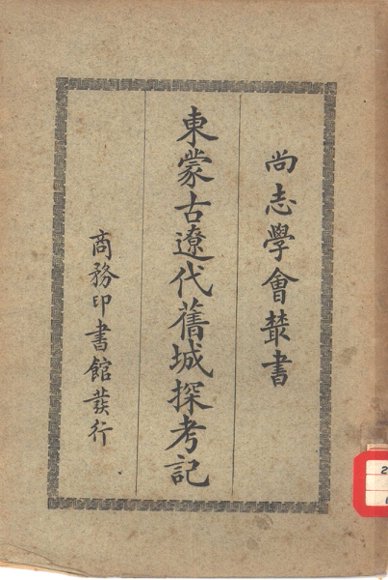 尚志學會叢書
東蒙古遼代舊城探考記
商務印書館發行
2